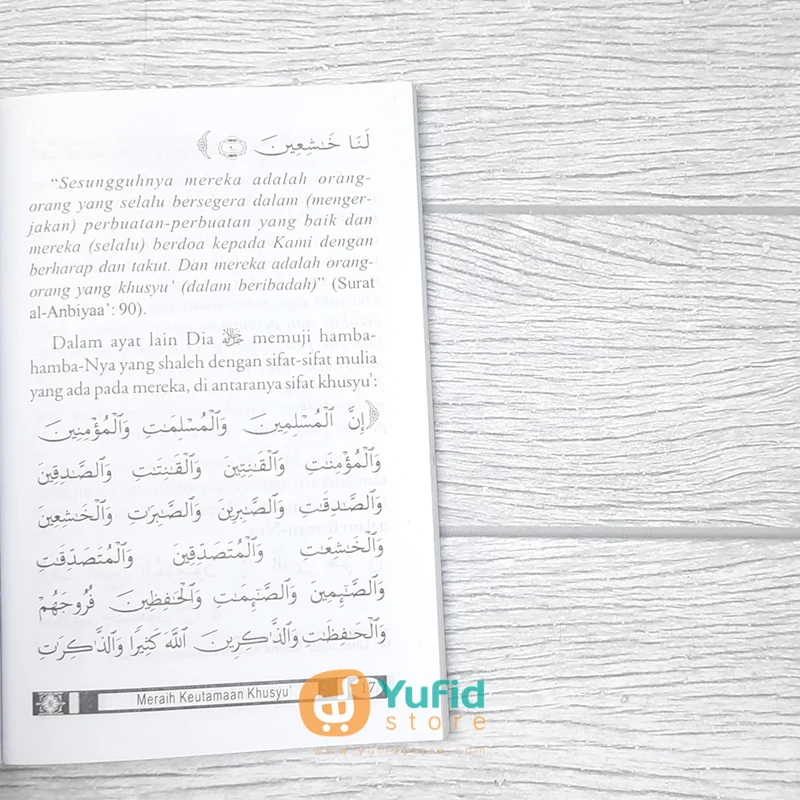 لَنَا خَٰشِعِينَ ﴿٩٠﴾
“Sesungguhnya mereka adalah orang-
orang yang selalu bersegera dalam (menger-
jakan) perbuatan-perbuatan yang baik dan
mereka (selalu) berdoa kepada Kami dengan
berharap dan takut. Dan mereka adalah orang-
orang yang khusyu’ (dalam beribadah)” (Surat
al-Anbiyaa’: 90).
Dalam ayat lain Dia ﷻ memuji hamba-
hamba-Nya yang shaleh dengan sifat-sifat mulia
yang ada pada mereka, di antaranya sifat khusyu’:
﴿إِنَّ ٱلْمُسْلِمِينَ وَٱلْمُسْلِمَٰتِ وَٱلْمُؤْمِنِينَ
وَٱلْمُؤْمِنَٰتِ وَٱلْقَٰنِتِينَ وَٱلْقَٰنِتَٰتِ وَٱلصَّٰدِقِينَ
وَٱلصَّٰدِقَٰتِ وَٱلصَّٰبِرِينَ وَٱلصَّٰبِرَٰتِ وَٱلْخَٰشِعِينَ
وَٱلْخَٰشِعَٰتِ وَٱلْمُتَصَدِّقِينَ وَٱلْمُتَصَدِّقَٰتِ
وَٱلصَّٰٓئِمِينَ وَٱلصَّٰٓئِمَٰتِ وَٱلْحَٰفِظِينَ فُرُوجَهُمْ
وَٱلْحَٰفِظَٰتِ وَٱلذَّٰكِرِينَ ٱللَّهَ كَثِيرًا وَٱلذَّٰكِرَٰتِ
Meraih Keutamaan Khusyu’ 17
Yufid
store
www.yufidstore.com